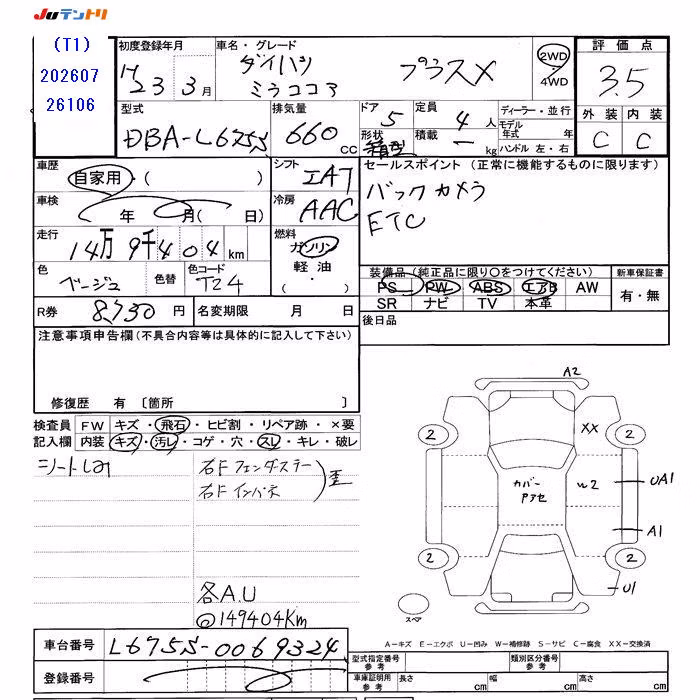 JUテントリ
(T1)
202607
26106
初度登録年月
H23 3月
車名・グレード
ダイハツ
ミラココア
プラスX
2WD
4WD
評価点
3.5
外装 内装
C C
型式
DBA-L675S
排気量
660 cc
ドア
5
形状
箱型
定員
4 人
積載
ー kg
ディーラー・並行
モデル年式 年
ハンドル 左・右
車歴
自家用・( )
シフト
IAT
セールスポイント(正常に機能するものに限ります)
バックカメラ
ETC
車検
年 月( 日)
冷房
AAC
走行
14万9千404km
燃料
ガソリン
軽油・
( )
色
ベージュ
色替
色コード
T24
装備品(純正品に限り○をつけてください)
PS PW ABS エアB AW
SR ナビ TV 本革
新車保証書
有・無
R券
8,730 円
名変期限 月 日
後日品
注意事項申告欄(不具合内容等は具体的に記入して下さい)
修復歴 有 〔箇所 〕
検査員 FW キズ・飛石・ヒビ割・リペア跡・×要
記入欄 内装 キズ・汚レ・コゲ・穴・スレ・キレ・破レ
右Fフェンダステー
右Fインパネ
歪
各A.U
◎149404Km
A2
2
XX
2
カバー
Pアセ
W2
UA1
A1
2
2
U1
スペア
A-キズ E-エクボ U-凹み W-補修跡 S-サビ C-腐食 XX-交換済
車台番号 L675S-0069324
登録番号
型式指定番号 参考
類別区分番号 参考
車庫証明用 参考
長さ cm 幅 cm 高さ cm